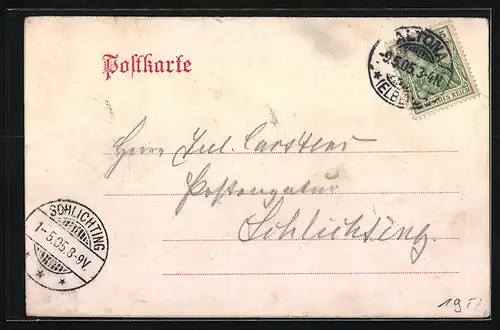 Postkarte
ALTONA
-9.5.05.3-4N.
* (ELBE)
DEUTSCHES REICH
Herrn Jul. Carstens
Postagentur
Schlichting.
SCHLICHTING
1-5.05.8-9V.
* * *